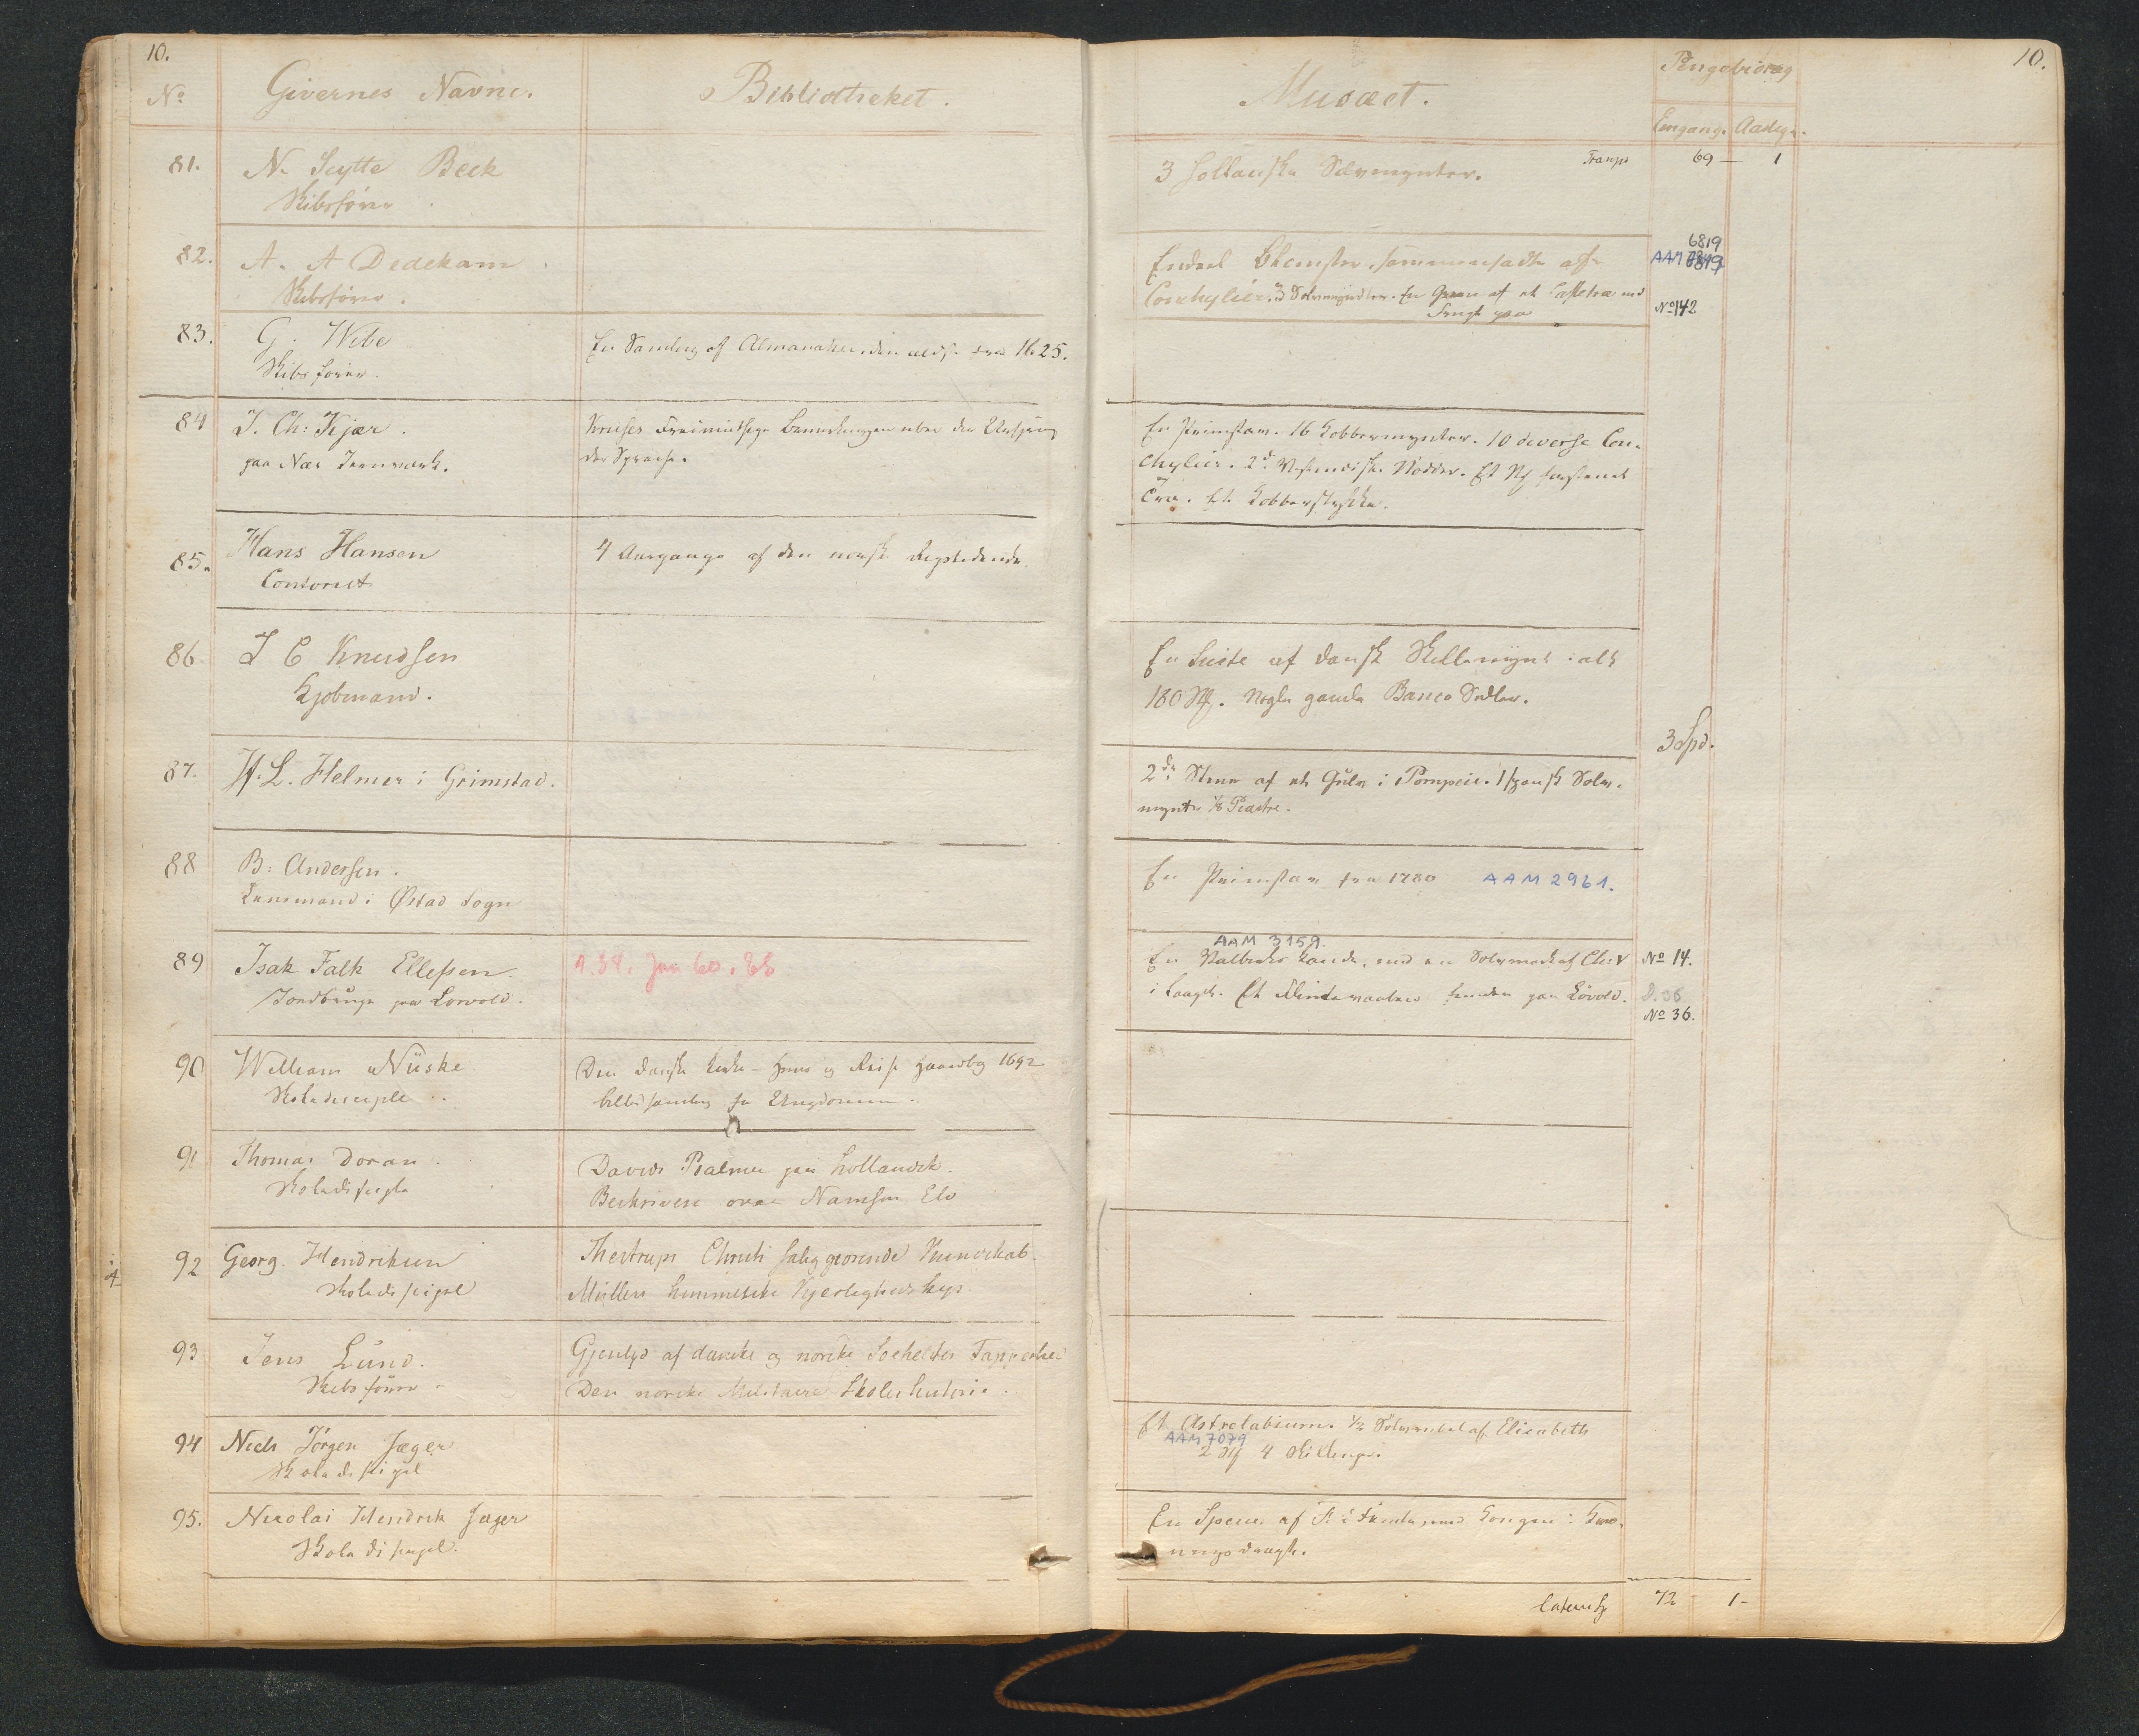 10.
10.
No
Givernes Navne.
Bibliotheket.
Musæet.
Pengebidrag
Eengang. Aarlig.
81.
N. Scytte Beck
Skibsfører
3 hollanske Sølvmynter.
Transp
69 — 1
82.
A. A Dedekam
Skibsfører.
Endeel Blomster, sammensadte af
Conchylier. 3 Sølvmynter. En Green af et Caffetræ med
Frugt paa
6819
AAM 6819
No 142
83.
G. Wibe
Skibsfører.
En Samling af Almanaker, den ældste fra 1625.
84
J. Ch: Kjær.
paa Næs Jernværk.
Kruses Freimüthige Bemerkungen über den Ursprung
der Sprache.
En Primstav. 16 Kobbermynter. 10 diverse Con-
chylier. 2 Vestindiske Nødder. Et Stk forstenet
Træ. Et Kobberstykke.
85.
Hans Hansen
Contorist
4 Aargange af den norske Rigstidende.
86.
J C Knudsen
Kjøbmand.
En Suite af dansk Skillemynt i alt
180 St. Nogle gamle Banco Sedler.
3 Spd.
87.
H. L. Helmer i Grimstad.
2de Stene af et Gulv i Pompeii. 1 spansk Sølv-
mynt 1/8 Piastre.
88
B: Andersen.
Lensmand i Østad Sogn
En Primstav fra 1780 AAM 2961.
89
Isak Falk Ellefsen.
Jordbruger paa Lovold.
A.34. Jan 60. 66
AAM 3159.
En Valbirks Kande, med en Sølvmark af Chr: V
i Laaget. Et Flintevaaben funden paa Lövold.
No 14.
No 36.
90
William Nüske
Skoledisciple
Den danske Kirke- Huus og Reise Haandbog 1692
Billedsamling for Ungdommen.
91
Thomas Doran.
Skoledisciple
Davids Psalmer paa hollandsk.
Beskrivelse over Namsen Elv
92
Georg. Hendriksen
Skolediscipel
Thestrups Christi saliggiørende Kundskab.
Müllers himmelske Kjerligheds kys.
93
Jens Lund.
Skibsfører.
Gjenlyd af danske og norske Søehelters Tapperhed
Den norske Militaire Skoles historie.
94
Niels Jörgen Jæger
Skolediscipel
Et Astrolabium. 1/2 Sølvrubel af Elisabeth
AAM 7079
2 St 4 Skilling.
95.
Nicolai Hendrik Jæger
Skolediscipel.
En Specie af Fr: d: Femte, med Kongen i Kro-
ningsdragt.
Lateris
72 — 1-